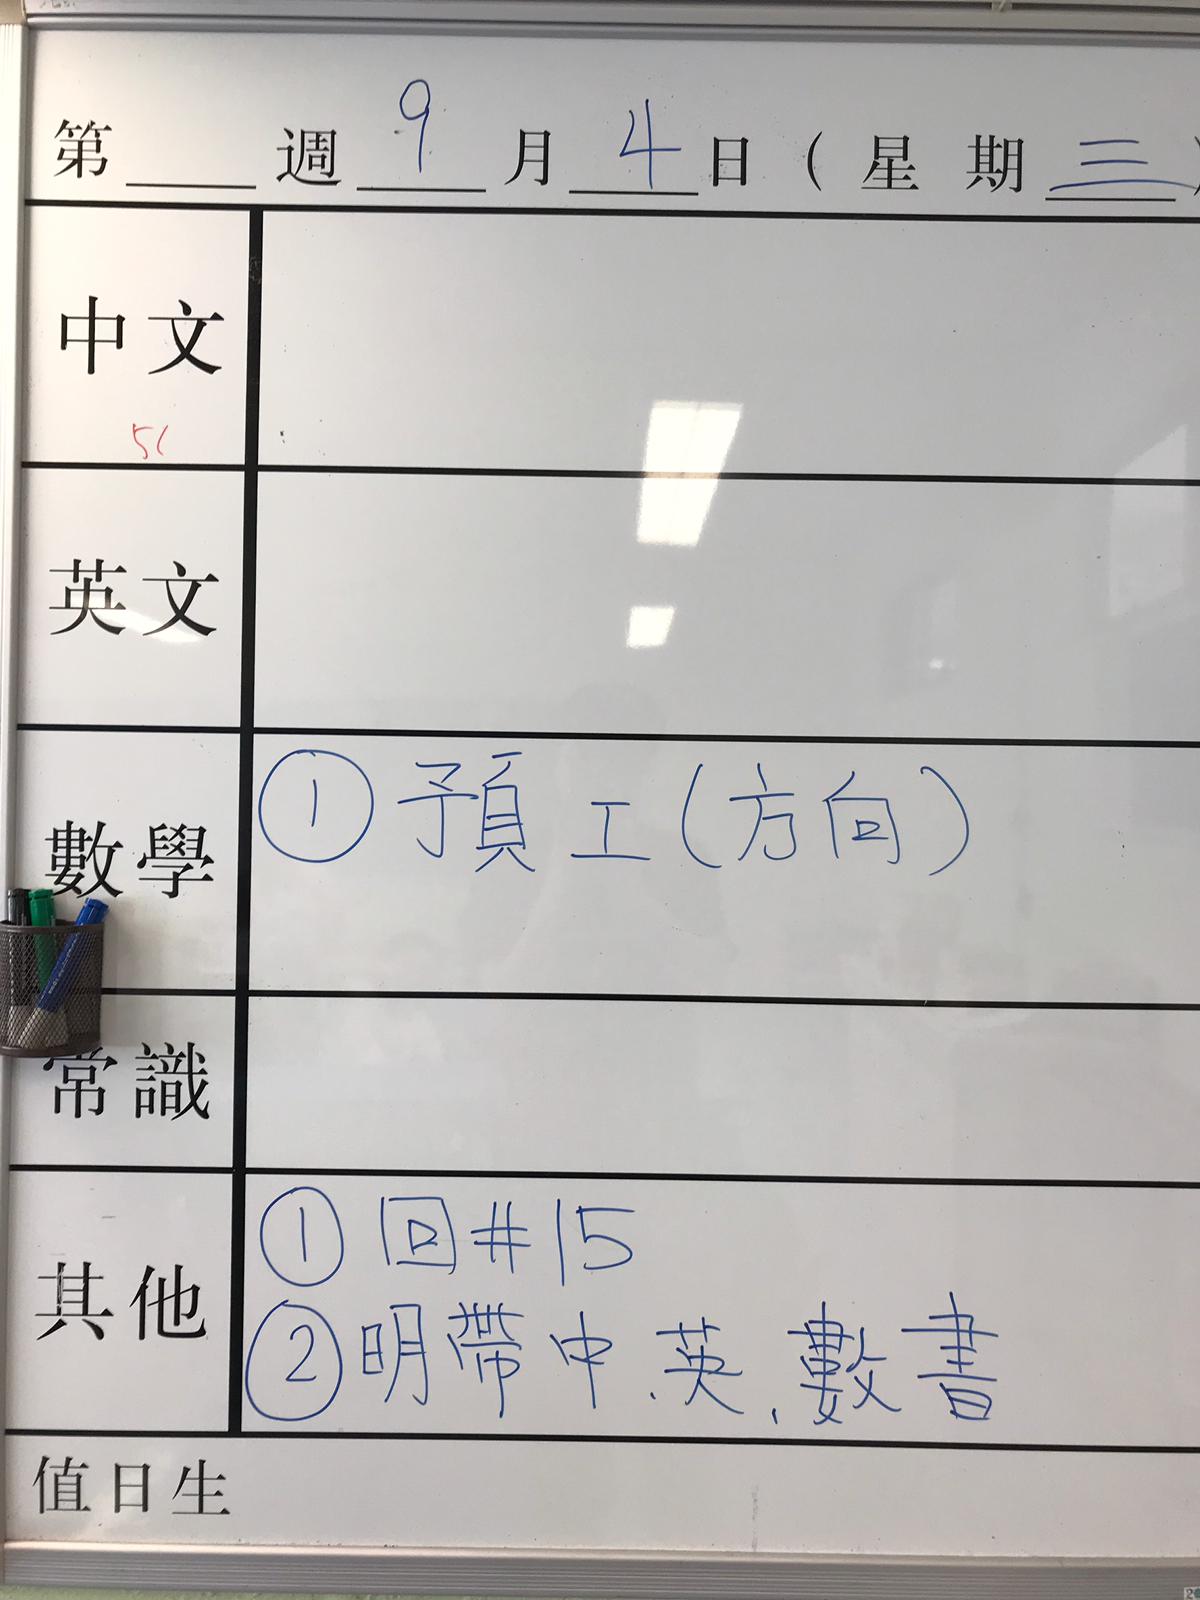 第 週 9 月 4 日 ( 星 期 三 )
中文
英文
數學 ① 預工(方向)
常識
其他 ① 回#15
② 明帶中、英、數書
值日生